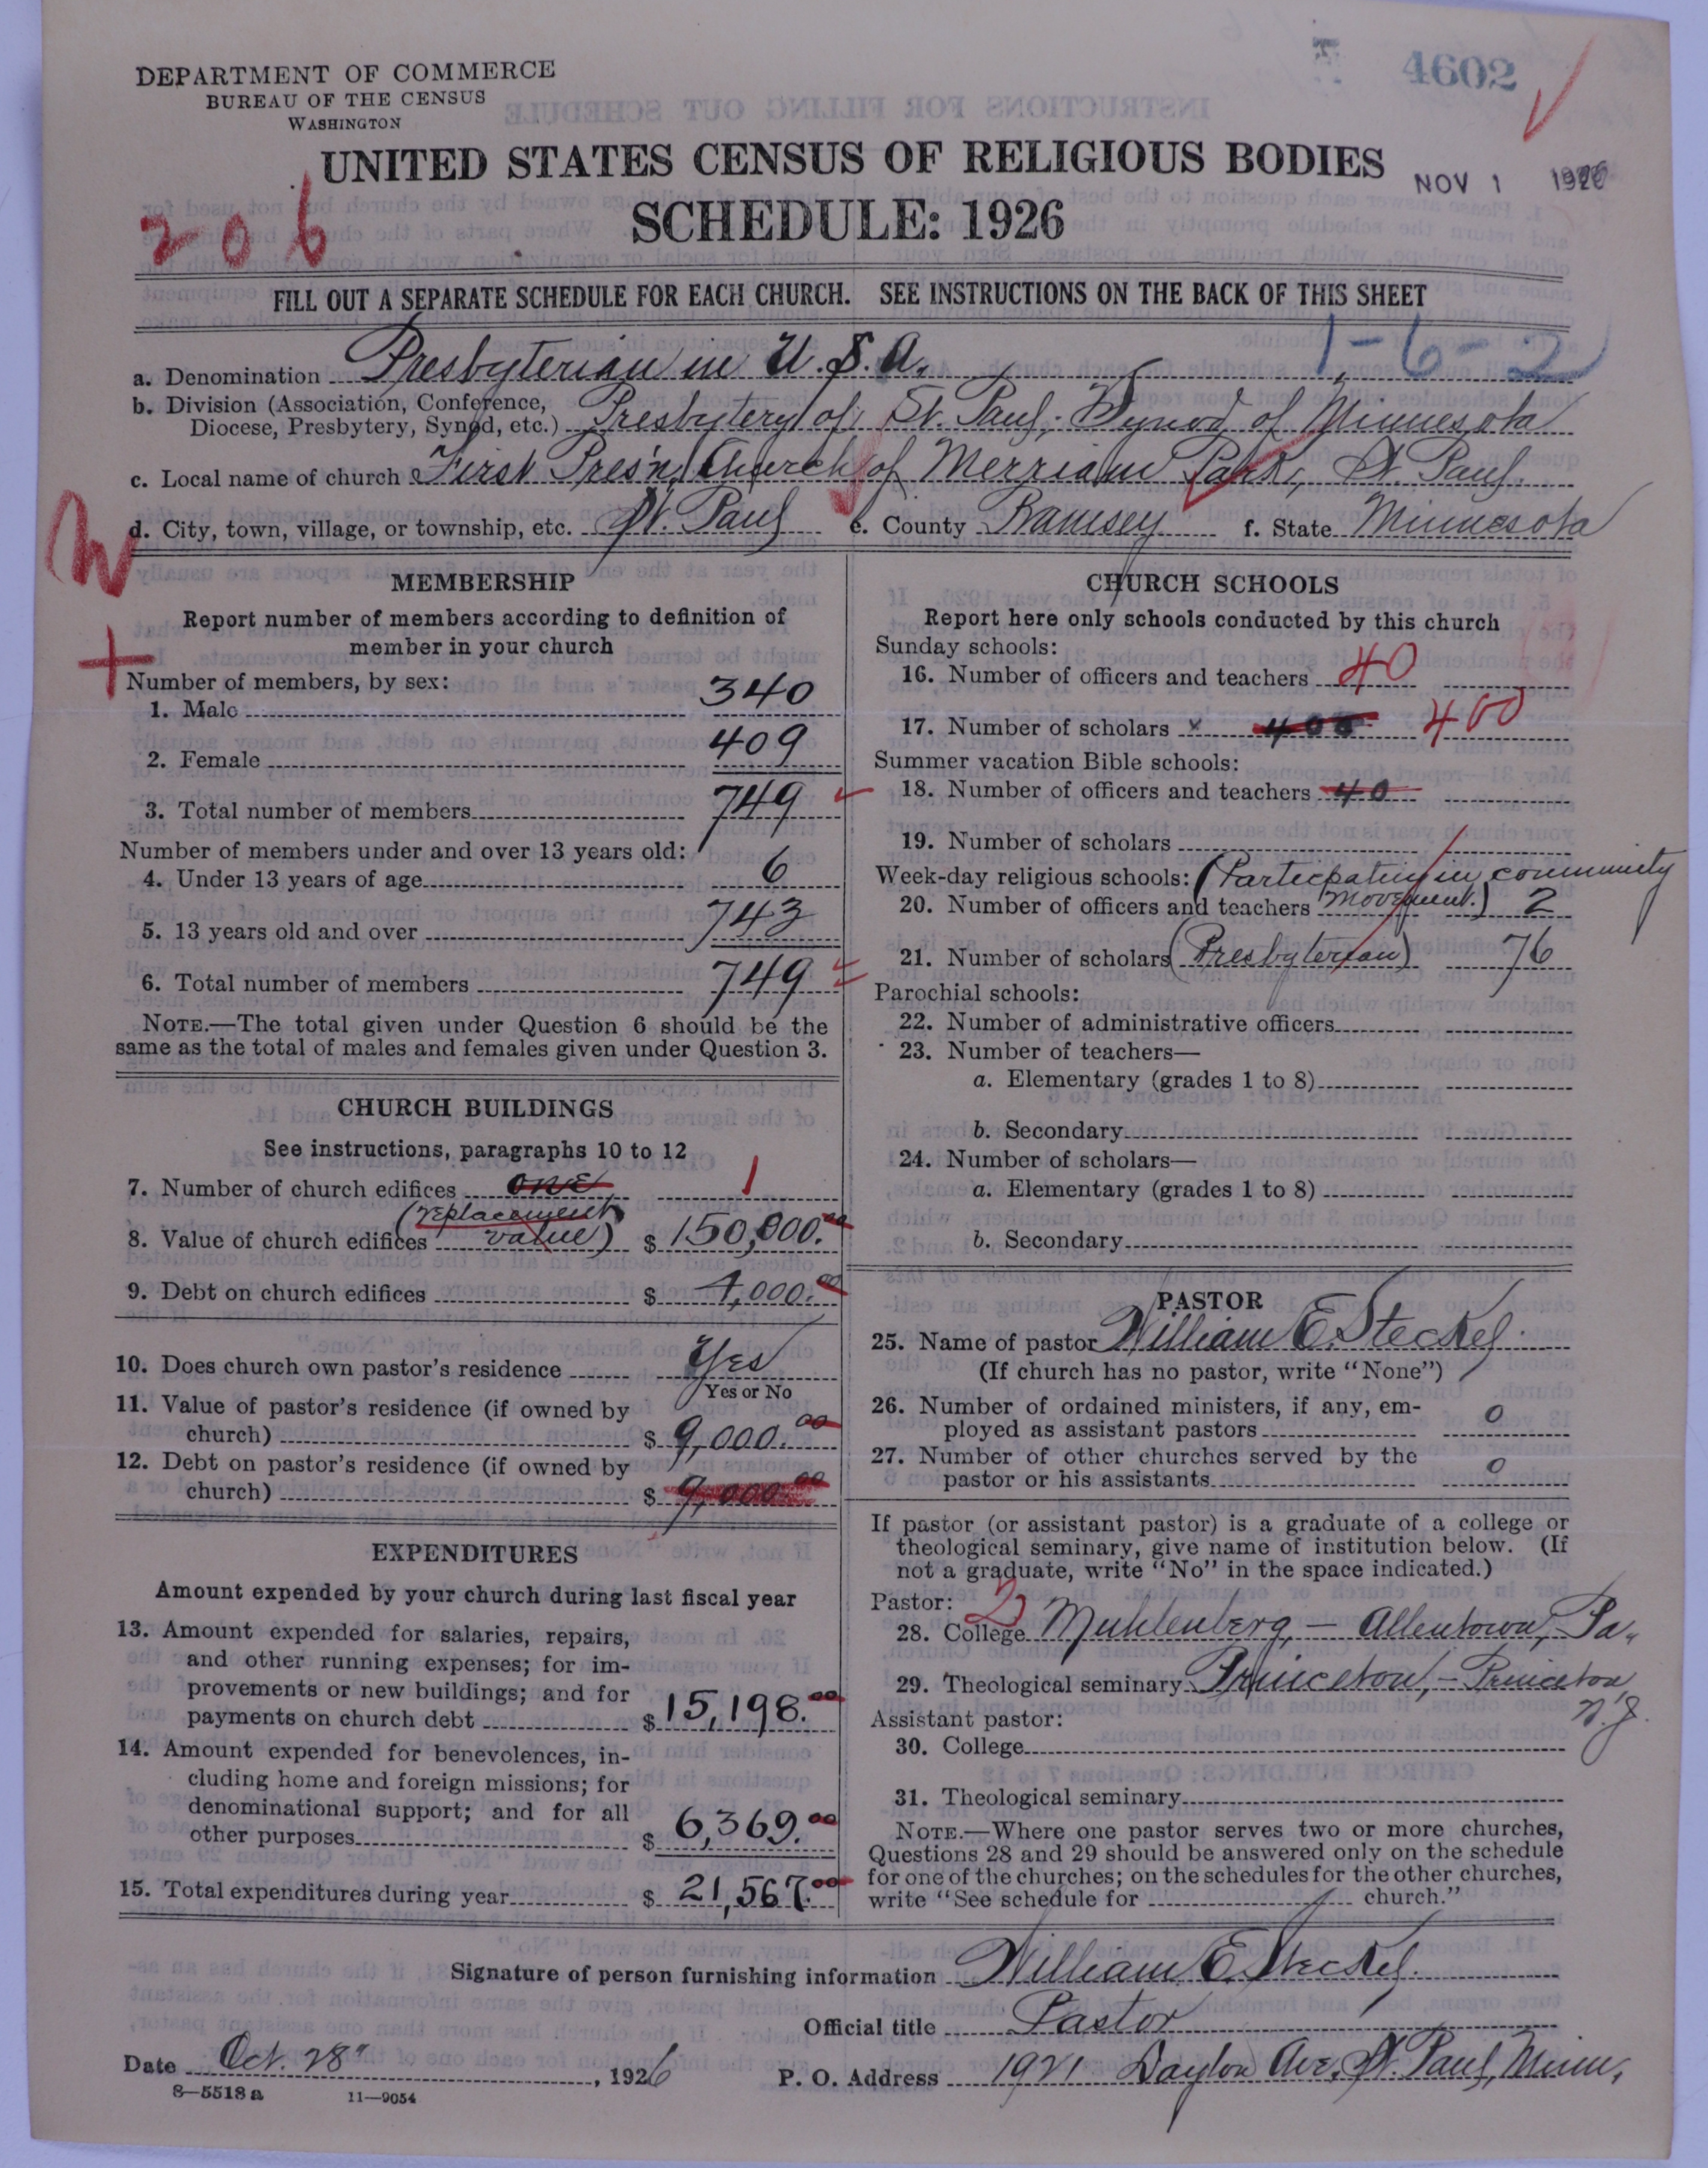 4602
DEPARTMENT OF COMMERCE
BUREAU OF THE CENSUS
WASHINGTON
UNITED STATES CENSUS OF RELIGIOUS BODIES
NOV 1 1926
206
SCHEDULE: 1926
FILL OUT A SEPARATE SCHEDULE FOR EACH CHURCH. SEE INSTRUCTIONS ON THE BACK OF THIS SHEET
1-6-2
a. Denomination Presbyterian in U.S.A.
b. Division (Association, Conference,
Diocese, Presbytery, Synod, etc.) Presbytery of St. Paul; Synod of Minnesota
c. Local name of church First Pres'n. Church of Merriam Park, St. Paul.
d. City, town, village, or township, etc. St. Paul e. County Ramsey f. State Minnesota
MEMBERSHIP
Report number of members according to definition of
member in your church
Number of members, by sex:
1. Male 340
2. Female 409
3. Total number of members 749
Number of members under and over 13 years old:
4. Under 13 years of age 6
5. 13 years old and over 743
6. Total number of members 749
NOTE.—The total given under Question 6 should be the
same as the total of males and females given under Question 3.
CHURCH BUILDINGS
See instructions, paragraphs 10 to 12
7. Number of church edifices ONE 1
(replacement
8. Value of church edifices value) $ 150,000.00
9. Debt on church edifices $ 4,000.00
10. Does church own pastor's residence Yes
Yes or No
11. Value of pastor's residence (if owned by
church) $ 9,000.00
12. Debt on pastor's residence (if owned by
church) $ 9,000.00
EXPENDITURES
Amount expended by your church during last fiscal year
13. Amount expended for salaries, repairs,
and other running expenses; for im-
provements or new buildings; and for
payments on church debt $ 15,198.00
14. Amount expended for benevolences, in-
cluding home and foreign missions; for
denominational support; and for all
other purposes $ 6,369.00
15. Total expenditures during year $ 21,567.00
CHURCH SCHOOLS
Report here only schools conducted by this church
Sunday schools:
16. Number of officers and teachers 40
17. Number of scholars x 400 400
Summer vacation Bible schools:
18. Number of officers and teachers 40
19. Number of scholars
Week-day religious schools: (Partecpating in community
20. Number of officers and teachers movement.) 2
21. Number of scholars (Presbyterian) 76
Parochial schools:
22. Number of administrative officers
23. Number of teachers—
a. Elementary (grades 1 to 8)
b. Secondary
24. Number of scholars—
a. Elementary (grades 1 to 8)
b. Secondary
PASTOR
25. Name of pastor William E. Steckel.
(If church has no pastor, write "None")
26. Number of ordained ministers, if any, em-
ployed as assistant pastors 0
27. Number of other churches served by the
pastor or his assistants 0
If pastor (or assistant pastor) is a graduate of a college or
theological seminary, give name of institution below. (If
not a graduate, write "No" in the space indicated.)
Pastor: 2
28. College Muhlenberg, - Allentown, Pa.
29. Theological seminary Princeton, - Princeton
N.J.
Assistant pastor:
30. College
31. Theological seminary
NOTE.—Where one pastor serves two or more churches,
Questions 28 and 29 should be answered only on the schedule
for one of the churches; on the schedules for the other churches,
write "See schedule for church."
Signature of person furnishing information William E. Steckel.
Official title Pastor
Date Oct. 28", 1926 P. O. Address 1921 Dayton Ave. St. Paul, Minn.
8—5518 a 11—9054